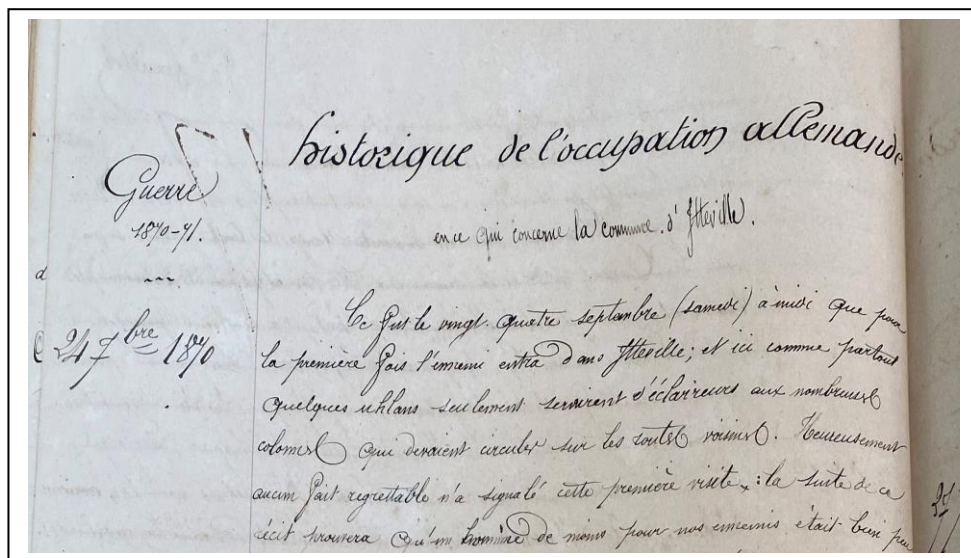 historique de l'occupation allemande
Guerre
1870-71.
en ce qui concerne la commune d'Itteville.
24 7bre 1870
Ce fut le vingt-quatre septembre (samedi) à midi que pour
la première fois l'ennemi entra dans Itteville; et ici comme partout
quelques uhlans seulement servirent d'éclaireurs aux nombreuses
colonnes qui devaient circuler sur les routes voisines. Heureusement
aucun fait regrettable n'a signalé cette première visite: la suite de ce
récit prouvera qu'un homme de moins pour nos ennemis était bien peu